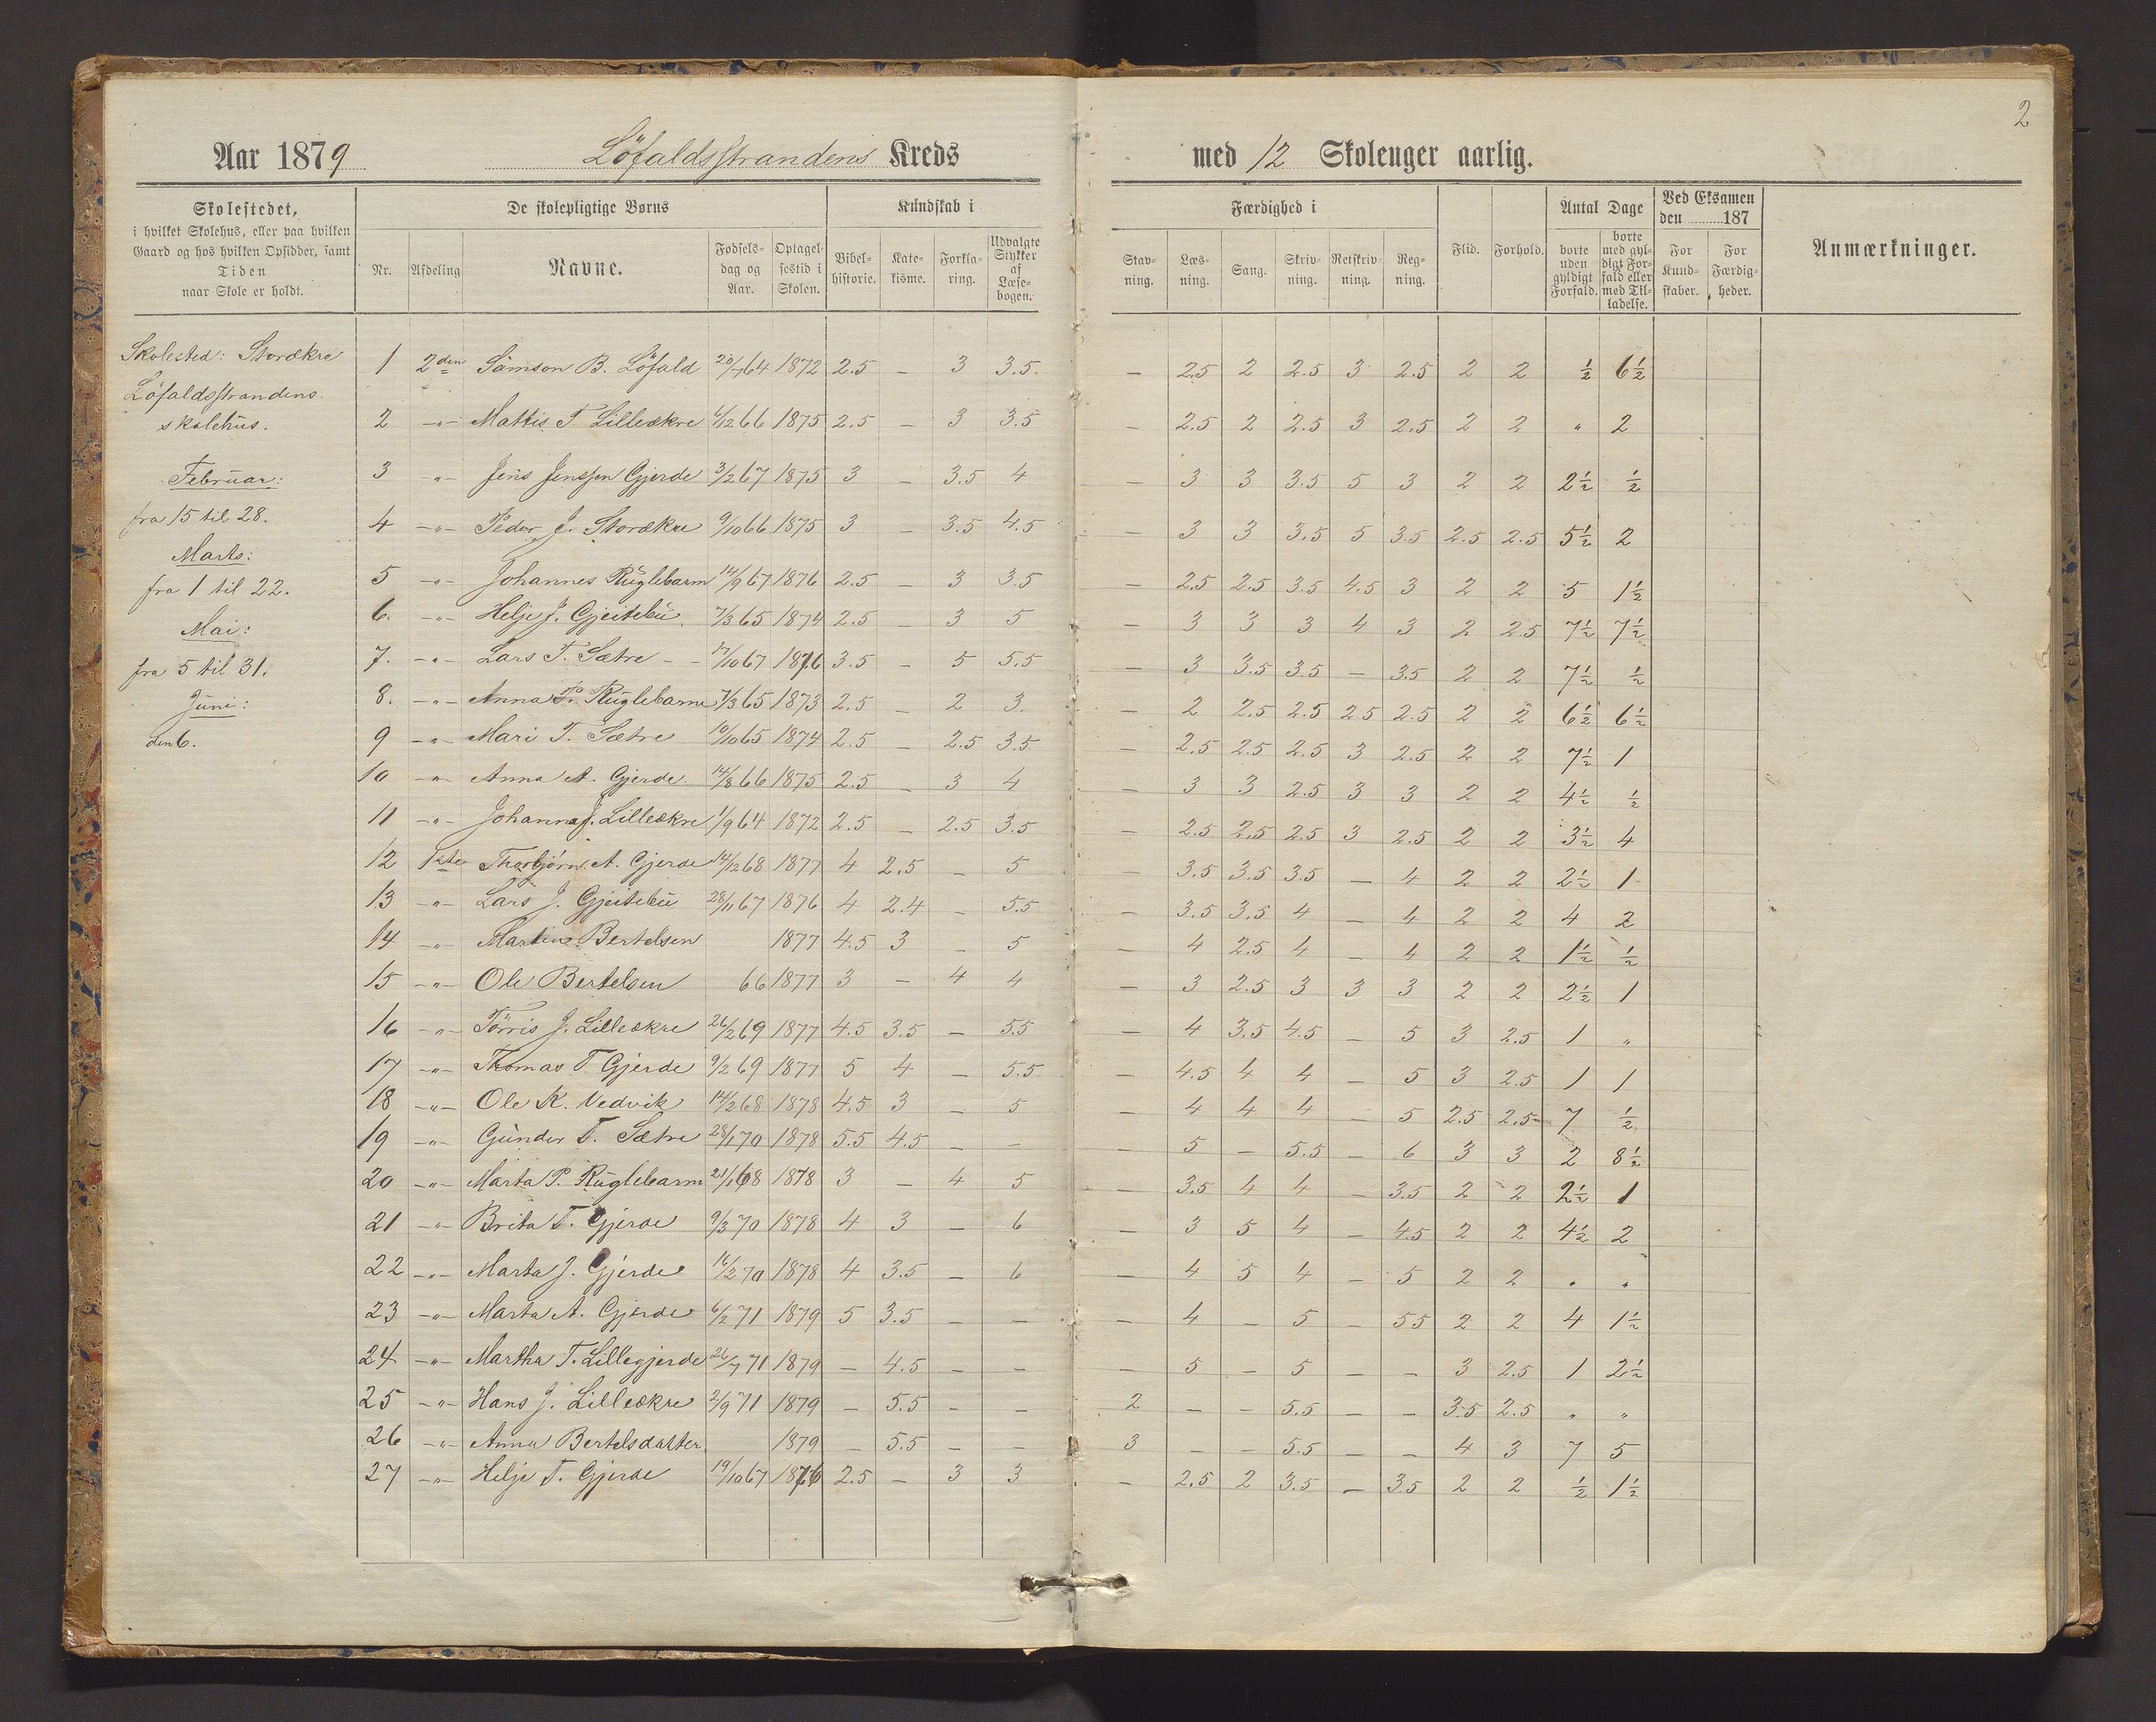 2
Aar 1879 Löfaldsstrandens Kreds med 12 Skoleuger aarlig.
Skolestedet, i hvilket Skolehus, eller paa hvilken Gaard og hos hvilken Opsidder, samt Tiden naar Skole er holdt.
De skolepligtige Børns
Kundskab i
Færdighed i
Antal Dage
Ved Eksamen den 187
Anmærkninger.
Nr. Afdeling Navne. Fødselsdag og Aar. Optagelsestid i Skolen. Bibelhistorie. Katekisme. Forklaring. Udvalgte Stykker af Læsebogen. Stavning. Læsning. Sang. Skrivning. Retskrivning. Regning. Flid. Forhold. borte uden gyldigt Forfald. borte med gyldigt Forfald eller med Tilladelse. For Kundskaber. For Færdigheder.
Skolested: Storækre
Löfaldsstrandens
skolehus.
Februar:
fra 15 til 28.
Marts:
fra 1 til 22.
Mai:
fra 5 til 31.
Juni:
den 6.
1 2den Samson B. Löfald 20/7 64 1872 2.5 — 3 3.5. — 2.5 2 2.5 3 2.5 2 2 ½ 6½
2 -"- Mattis T. Lilleækre 4/12 66 1875 2.5 — 3 3.5 — 2.5 2 2.5 3 2.5 2 2 " 2
3 " Jens Jenssen Gjerde 3/2 67 1875 3 — 3.5 4 — 3 3 3.5 5 3 2 2 2½ ½
4 -"- Peder J. Storækre 9/10 66 1875 3 — 3.5 4.5 — 3 3 3.5 5 3.5 2.5 2.5 5½ 2
5 -"- Johannes Ruglebarm 14/9 67 1876 2.5 — 3 3.5 — 2.5 2.5 3.5 4.5 3 2 2 5 1½
6. -"- Helje J. Gjeitebu 7/3 65 1874 2.5 — 3 5 — 3 3 3 4 3 2 2.5 7½ 7½
7. -"- Lars T. Sætre 17/10 67 1876 3.5 — 5 5.5 — 3 3.5 3.5 — 3.5 2 2 7½ ½
8. -"- Anna P. Ruglebarm 7/3 65 1873 2.5 — 2 3. — 2 2.5 2.5 2.5 2.5 2 2 6½ 6½
9 -"- Mari T. Sætre 10/10 65 1874 2.5 — 2.5 3.5 — 2.5 2.5 2.5 3 2.5 2 2 7½ 1
10 -"- Anna A. Gjerde. 14/8 66 1875 2.5 — 3 4 — 3 3 2.5 3 3 2 2 4½ ½
11 -"- Johanna J. Lilleækre 1/9 64 1872 2.5 — 2.5 3.5 — 2.5 2.5 2.5 3 2.5 2 2 3½ 4
12 1ste Thorbjörn A. Gjerde 14/12 68 1877 4 2.5 — 5 — 3.5 3.5 3.5 — 4 2 2 2½ 1
13 -"- Lars J. Gjeitebu 28/11 67 1876 4 2.4 — 5.5 — 3.5 3.5 4 — 4 2 2 4 2
14 -"- Martin Bertelsen 1877 4.5 3 — 5 — 4 2.5 4 — 4 2 2 1½ ½
15 -"- Ole Bertelsen 66 1877 3 — 4 4 — 3 2.5 3 3 3 2 2 2½ 1
16 -"- Törris J. Lilleækre 26/2 69 1877 4.5 3.5 — 5.5 — 4 3.5 4.5 — 5 3 2.5 1 "
17 -"- Thomas T Gjerde 9/2 69 1877 5 4 — 5.5 — 4.5 4 4 — 5 3 2.5 1 1
18 -"- Ole K. Vedvik 14/2 68 1878 4.5 3 — 5 — 4 4 4 — 5 2.5 2.5 7 ½
19 -"- Gunder T. Sætre 28/1 70 1878 5.5 4.5 — — — 5 — 5.5 — 6 3 3 2 8½
20 -"- Marta P. Ruglebarm 21/1 68 1878 3 — 4 5 — 3.5 4 4 — 3.5 2 2 2½ 1
21 -"- Brita T. Gjerde 9/3 70 1878 4 3 — 6 — 3 5 4 — 4.5 2 2 4½ 2
22 -"- Marta J. Gjerde 16/2 70 1878 4 3.5 — 6 — 4 5 4 — 5 2 2 " "
23 -"- Marta A. Gjerde 6/2 71 1879 5 3.5 — — — 4 — 5 — 5.5 2 2 4 1½
24 -"- Martha T. Lillegjerde 26/7 71 1879 — 4.5 — — — 5 — 5 — — 3 2.5 1 2½
25 -"- Hans J. Lilleækre 2/9 71 1879 — 5.5 — — 2 — — 5.5 — — 3.5 2.5 " "
26 -"- Anna Bertelsdatter 1879 — 5.5 — — 3 — — 5.5 — — 4 3 7 5
27 -"- Helje T. Gjerde 19/10 67 1876 2.5 — 3 3 — 2.5 2 3.5 — 3.5 2 2 ½ 1½